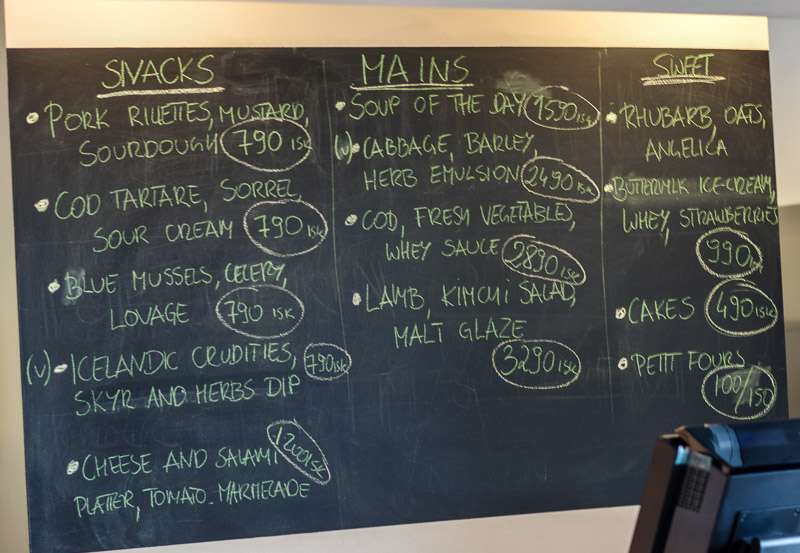 SNACKS
• PORK RILLETTES, MUSTARD,
SOURDOUGH 790 ISK
• COD TARTARE, SORREL
SOUR CREAM 790 ISK
• BLUE MUSSELS, CELERY,
LOVAGE 790 ISK
(V) • ICELANDIC CRUDITIES, 790 ISK
SKYR AND HERBS DIP
• CHEESE AND SALAMI 1200 ISK
PLATTER, TOMATO-MARMELADE
MAINS
• SOUP OF THE DAY 1550 ISK
(V) • CABBAGE, BARLEY,
HERB EMULSION 2490 ISK
• COD, FRESH VEGETABLES,
WHEY SAUCE 2890 ISK
• LAMB, KIMCHI SALAD,
MALT GLAZE
3290 ISK
SWEET
• RHUBARB, OATS,
ANGELICA
• BUTTERMILK ICE-CREAM,
WHEY, STRAWBERRIES
990 ISK
• CAKES 490 ISK
• PETIT FOURS
100/150